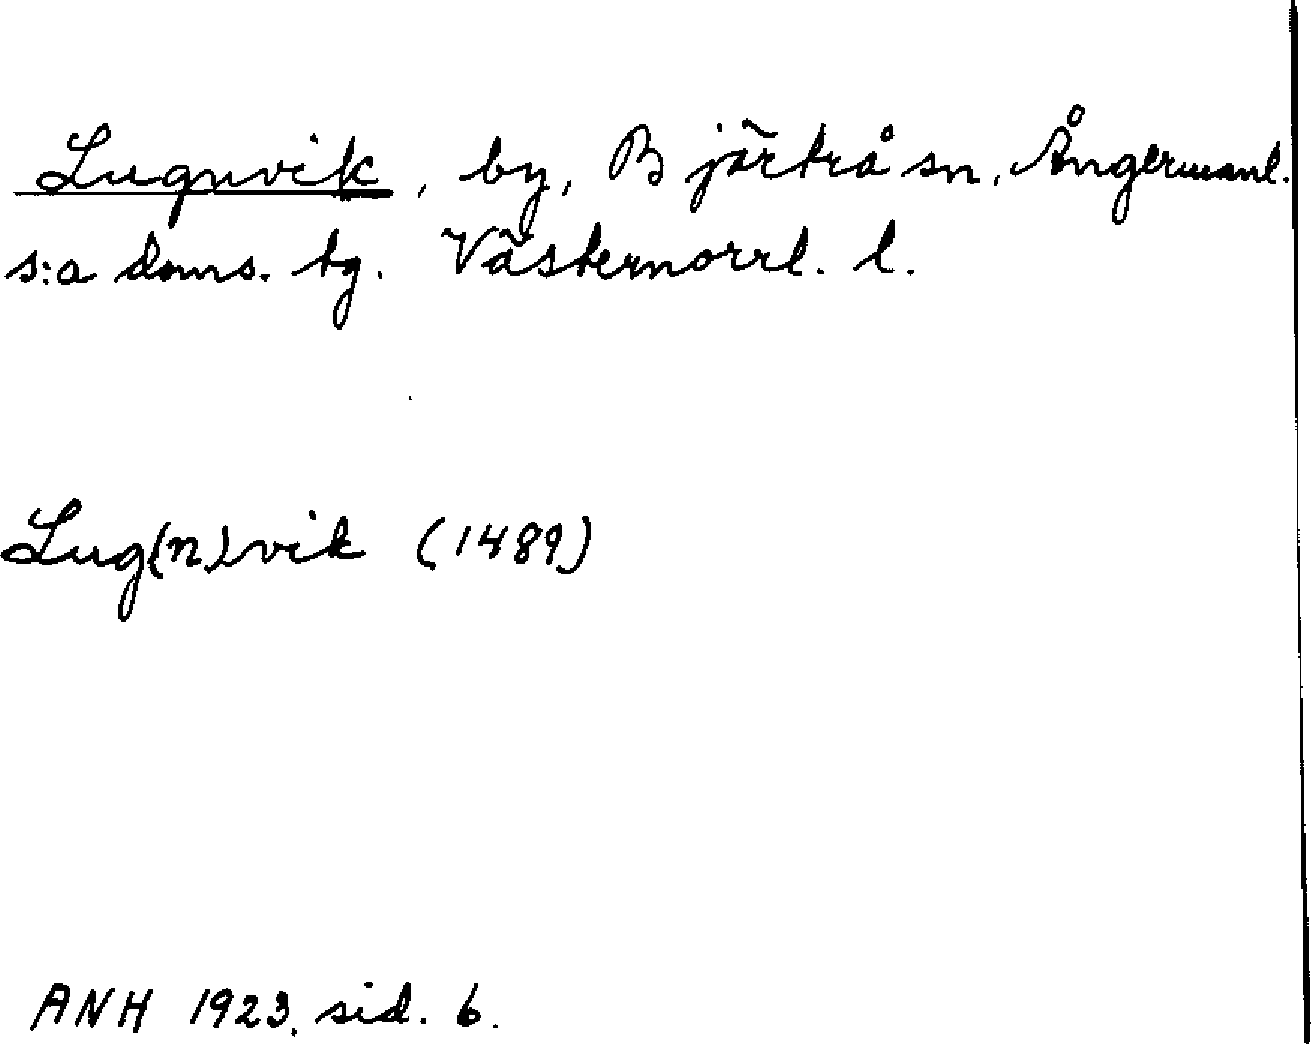 Lugnvik, by, Bjärtrå sn, Ångermanl.
s:a doms. tg. Västernorrl. l.
Lug(n)vik (1489)
ANH 1923, sid. 6.